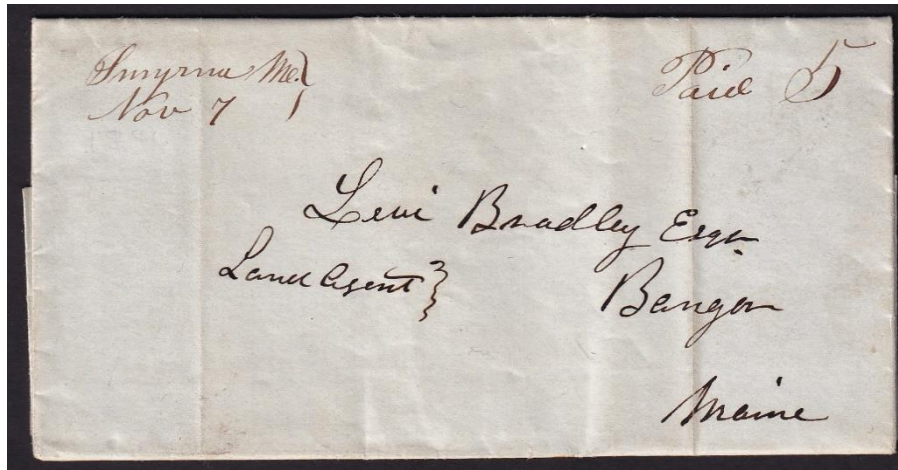 Smyrna Me.
Nov 7
Paid 5
Levi Bradley Esqr.
Land Agent
Bangor
Maine